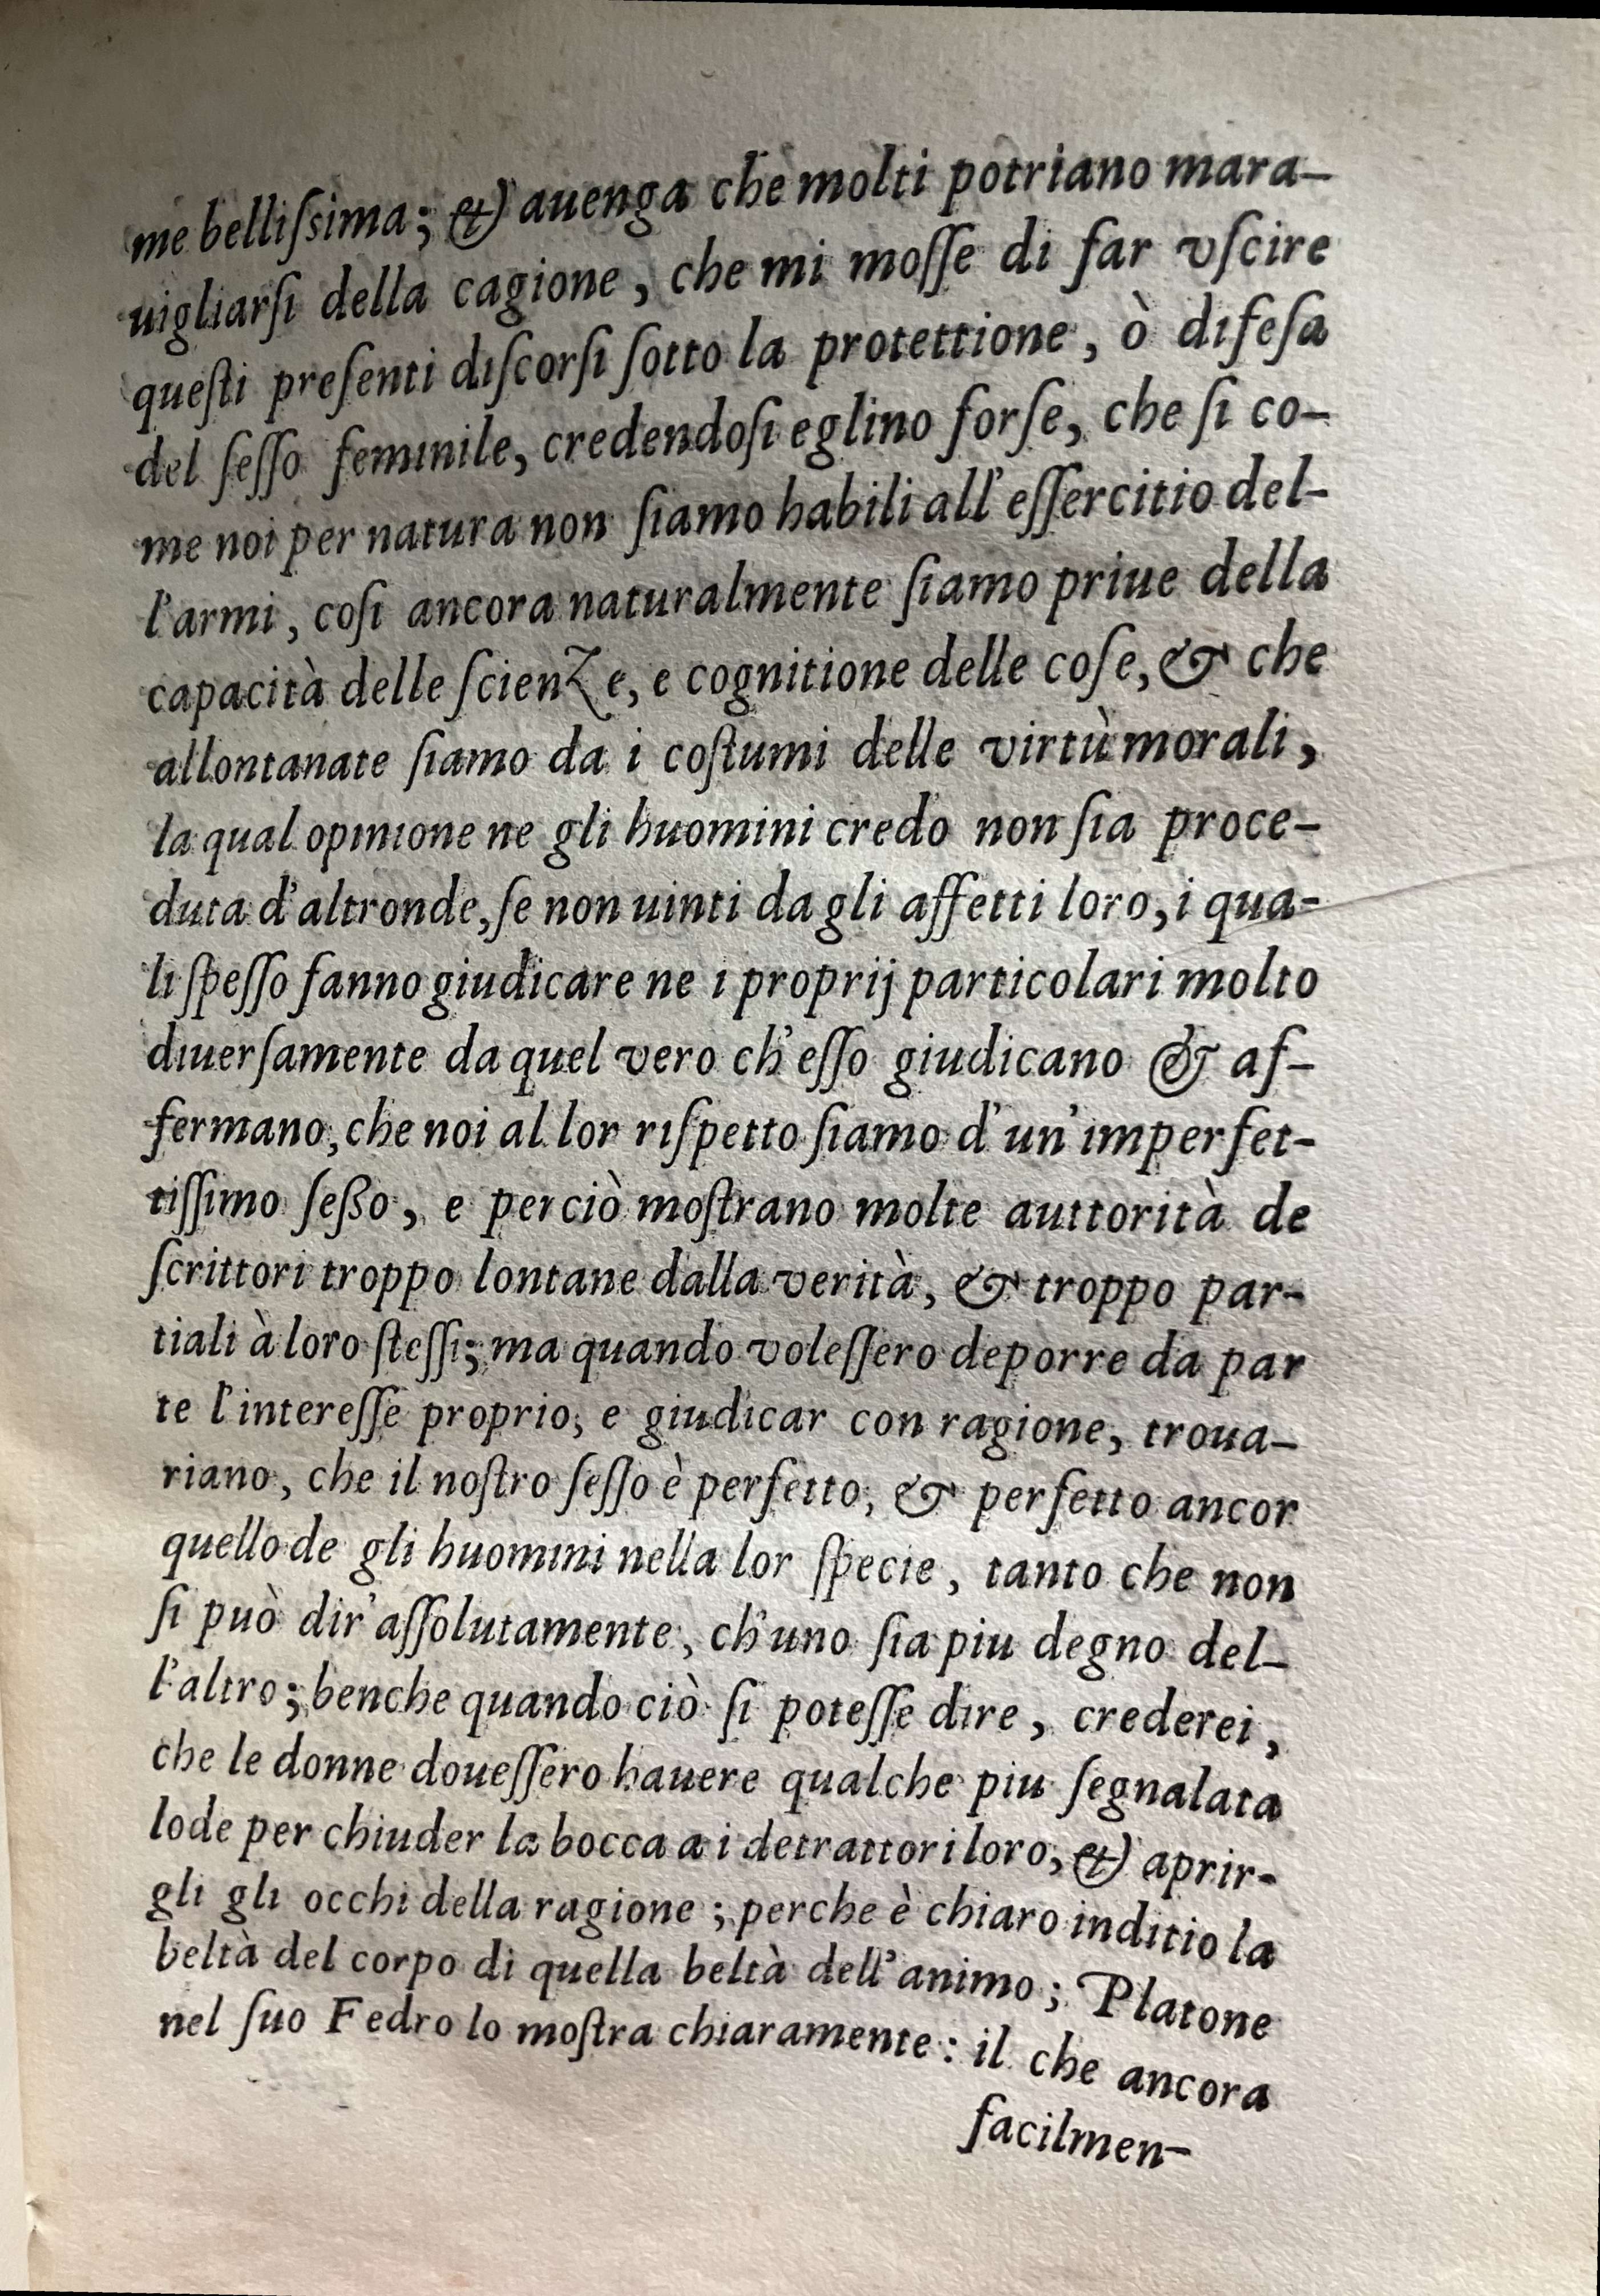 me belliſsima; & auenga che molti potriano mara-
uigliarſi della cagione, che mi moſſe di far vſcire
queſti preſenti diſcorſi ſotto la protettione, ò difeſa
del ſeſſo feminile, credendoſi eglino forſe, che ſi co-
me noi per natura non ſiamo habili all'eſſercitio del-
l'armi, coſi ancora naturalmente ſiamo priue della
capacità delle ſcienze, e cognitione delle coſe, & che
allontanate ſiamo da i coſtumi delle virtù morali,
la qual opinione ne gli huomini credo non ſia proce-
duta d'altronde, ſe non uinti da gli affetti loro, i qua-
li ſpeſſo fanno giudicare ne i proprij particolari molto
diuerſamente da quel vero ch'eſſo giudicano & af-
fermano, che noi al lor riſpetto ſiamo d'un'imperfet-
tiſſimo ſeßo, e perciò moſtrano molte auttorità de
ſcrittori troppo lontane dalla verità, & troppo par-
tiali à loro ſteſſi; ma quando voleſſero deporre da par
te l'intereſſe proprio, e giudicar con ragione, troua-
riano, che il noſtro ſeſſo è perfetto, & perfetto ancor
quello de gli huomini nella lor ſpecie, tanto che non
ſi può dir'aſſolutamente, ch'uno ſia piu degno del-
l'altro; benche quando ciò ſi poteſſe dire, crederei,
che le donne doueſſero hauere qualche piu ſegnalata
lode per chiuder la bocca a i detrattori loro, & aprir-
gli gli occhi della ragione; perche è chiaro inditio la
beltà del corpo di quella beltà dell'animo; Platone
nel ſuo Fedro lo moſtra chiaramente: il che ancora
facilmen-